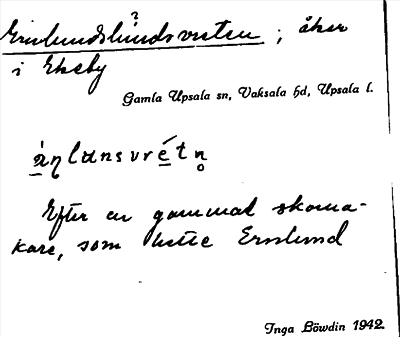 Ernlundslundsvreten ; åker
?
i Ekeby
Gamla Upsala sn, Vaksala hd, Upsala l.
ä̀ɳlɯnsvrétn̥
Efter en gammal skoma-
kare, som hette Ernlund
Inga Löwdin 1942.